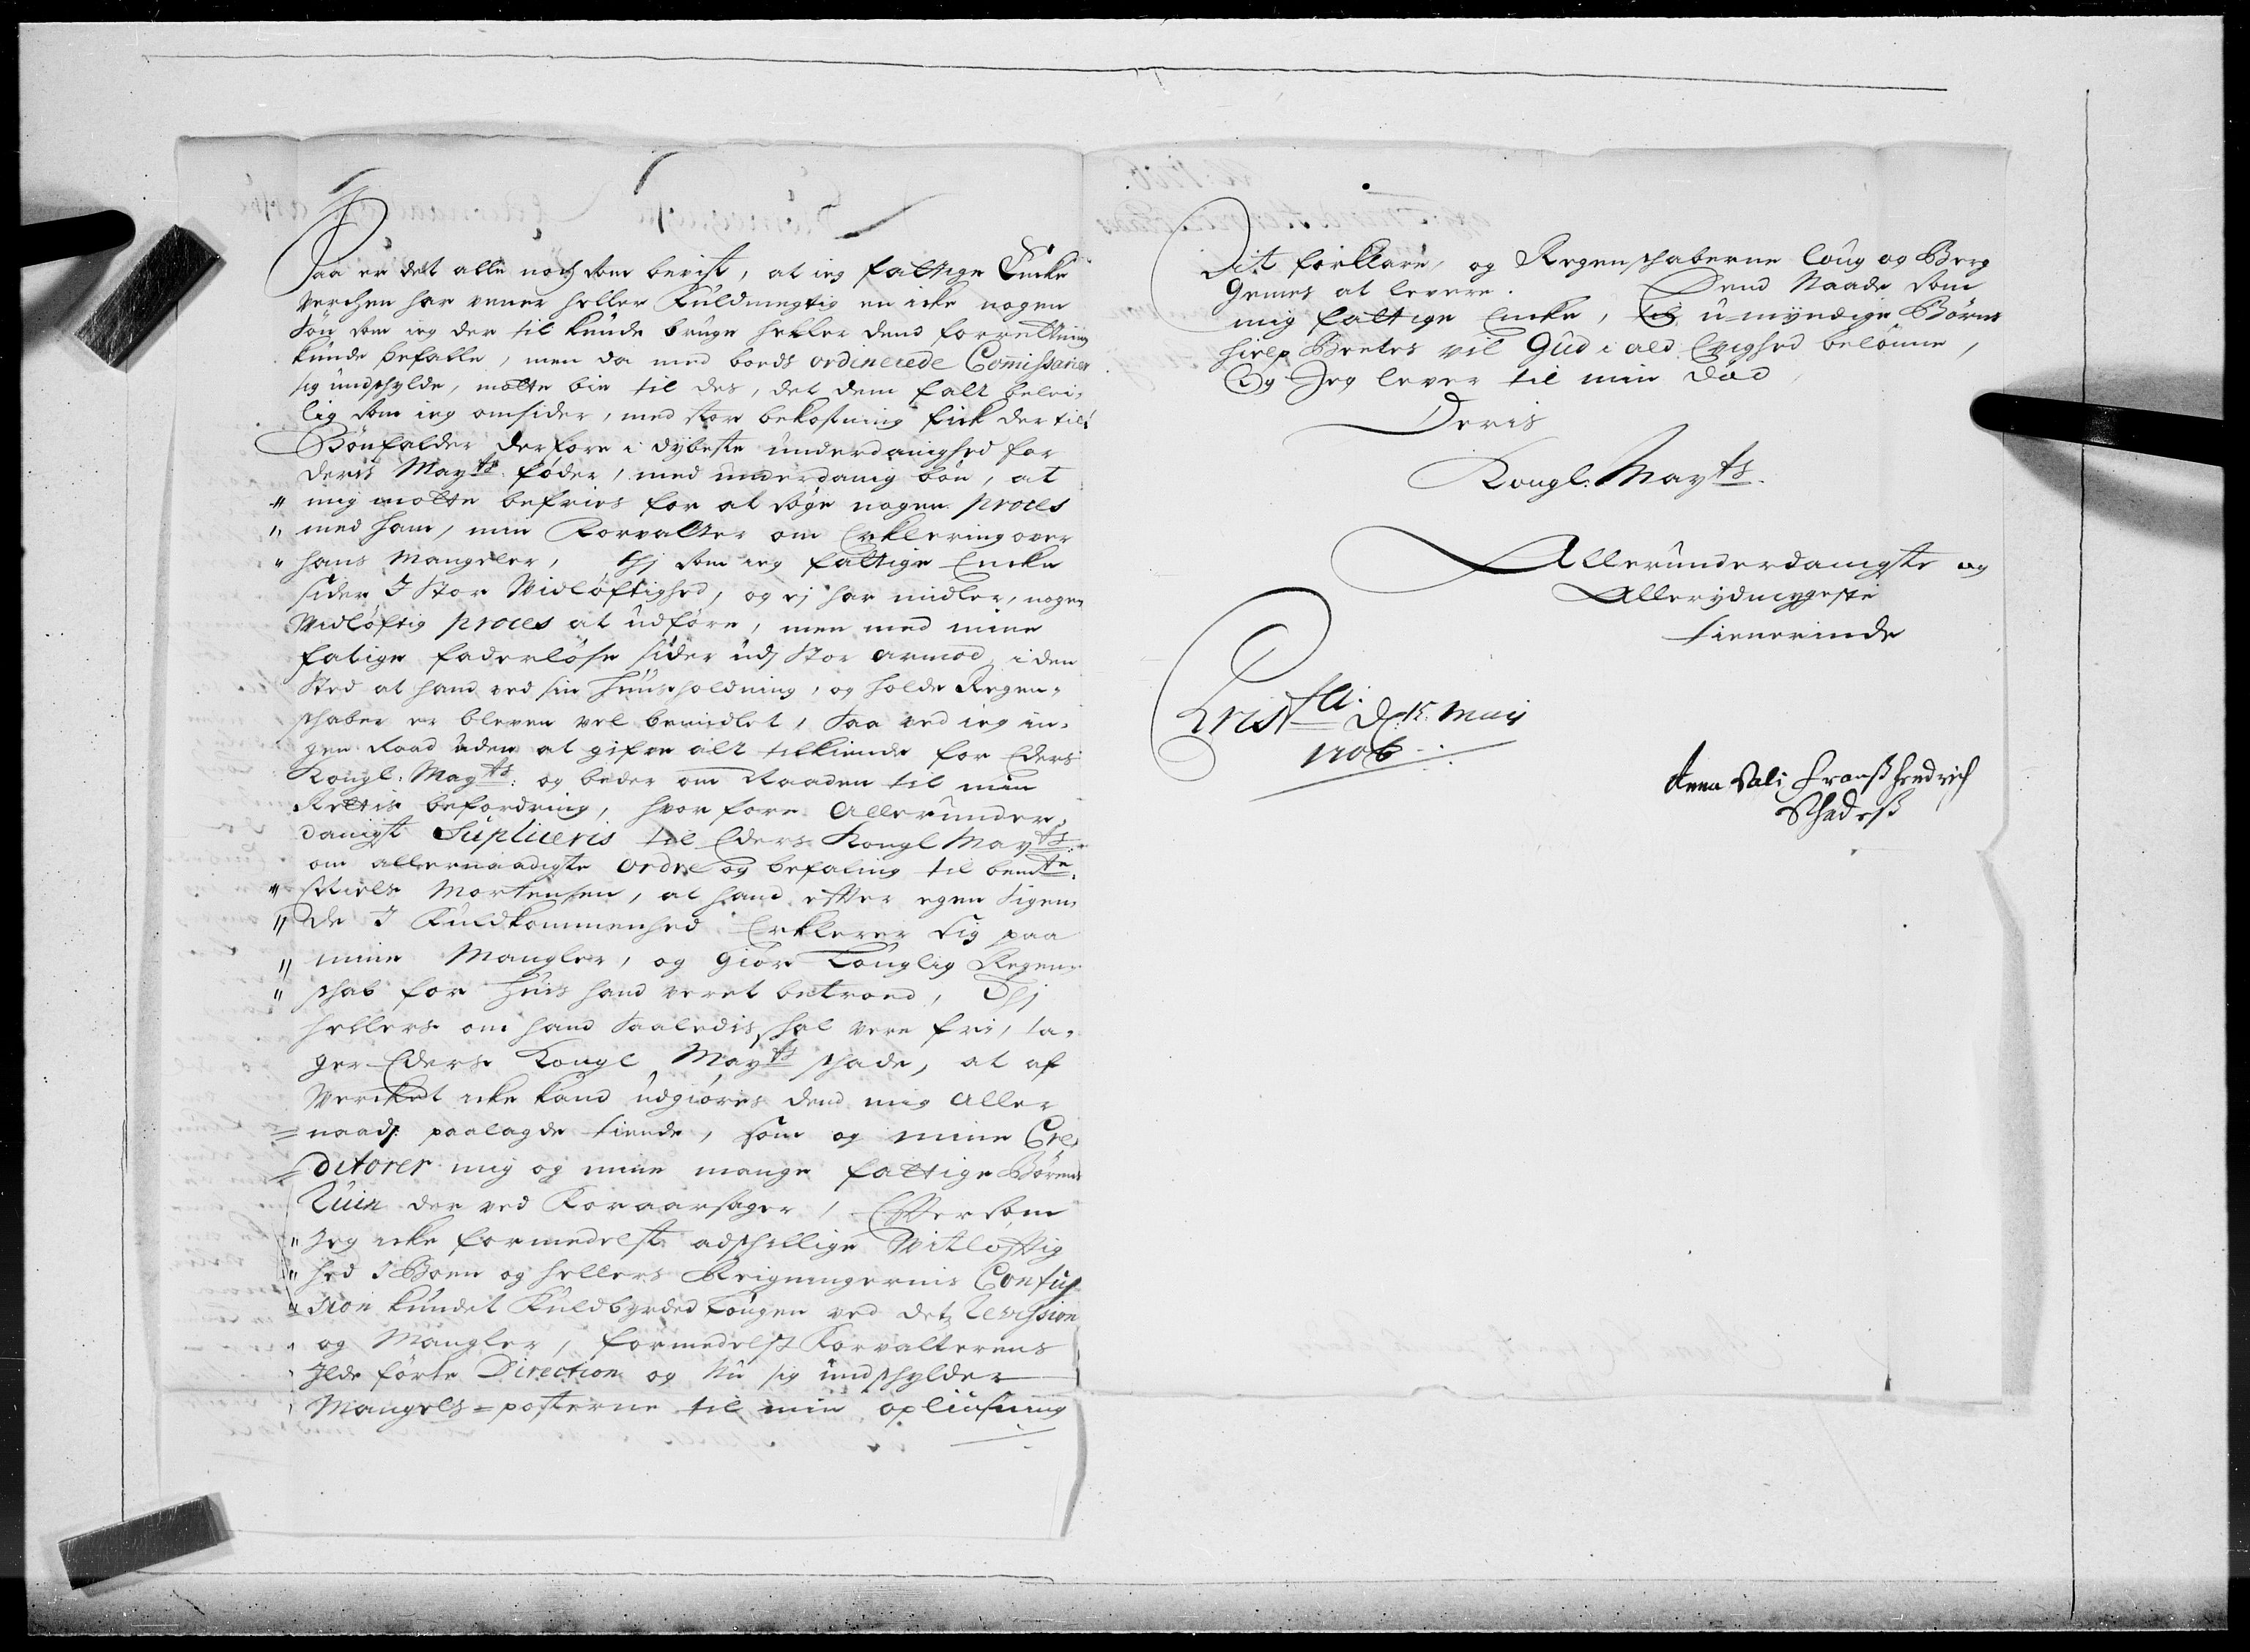 Saa er det alle noch som bevist, at ieg fattige Encke
verchen har vener heller Fuldmegtig en icke nogen
Søn som ieg der til kunde bruge heller dend forretning
kunde befalle, men da med bords ordinerede Commissarier
sig undskylde, motte bie til des, det dem falt belei-
lig som ieg omsider, med stor bekostning fick der til
Bønfalder derfore i dybeste underdanighed for
Deris Mayts føder, med underdanig bøn, at
mig motte befries for at søge nogen proces
med ham, min Forvalter om Erklering over
hans Mangeler, thj som ieg fattige Encke
sider I Stor Vidløftighed, og ej har midler, nogen
Vidløftig proces at udføre, men med mine
fatige faderløse sider udj Stor armod, i den
Sted at hand ved sin Huusholdning, og holde Regen-
schaber er bleven vel bemidlet, saa ved ieg in-
gen Raad uden at gifve alt tilkiende for Eders
Kongl: Mayts: og beder om Naaden til min
Rettis befordring, hvor fore Allerunder-
danigst Supliceris til Eders Kongl Mayts:
om allernaadigste ordre og befaling til bemte
Niels Mortensen, at hand efter egen Sigen-
de I Fuldkommenhed Erklerer sig paa
mine Mangler, og Giør Louglig Regen-
schab for Huis hand veret betroed, Thj
hellers om hand saaledis schal vere fri, ta-
ger Eders Kongl Mayts schade, at af
Vercket icke kand udgiøres dend mig Aller
naadj paalagde tiende, som og mine Cre-
ditorer mig og mine mange fattige Børens
Ruin der ved Foraarsager, Eftersom
Jeg icke formedelst adschellige Vitløftig
hed I Boen og hellers Reigningernis Confus-
sion kundet Fuldbyrded Lougen ved det Revission
og Mangler, formedelst Forvalterens
Ilde førte Direction og Nu sig undschylder
Mangels-posterne til min opliusning
Dit forklare, og Regenschaberne loug og Berg
Gemes at levere. Dend Naade som
mig fattige Encke, og u-myndige Børn
hielp Beetes vil Gud i ald Evighed belønne,
Og Jeg lever til min død
Deris
Kongl: Mayts.
Allerunderdanigste og
Allerydmygeste
tienerinde
Christia: d: 15. Maij
1706
Anna Sal: Franss Hendrich
Schadess